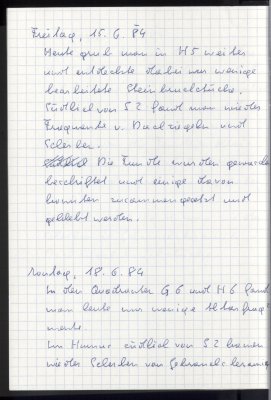 Freitag, 15.6.84
Heute grub man in H5 weiter
und entdeckte dabei nur wenige
bearbeitete Steinbruchstücke.
Südlich von S2 fand man wieder
Fragmente v. Dachziegeln und
Scherben.
Die Funde wurden gewaschen
beschriftet und einige davon
konnten zusammengesetzt und
geklebt werden.
Montag, 18.6.84
In den Quadranten G6 und H6 fand
man heute nur wenige
mente.
Im Humus südlich von S2 kamen
wieder Scherben von Gebrauchskeramik